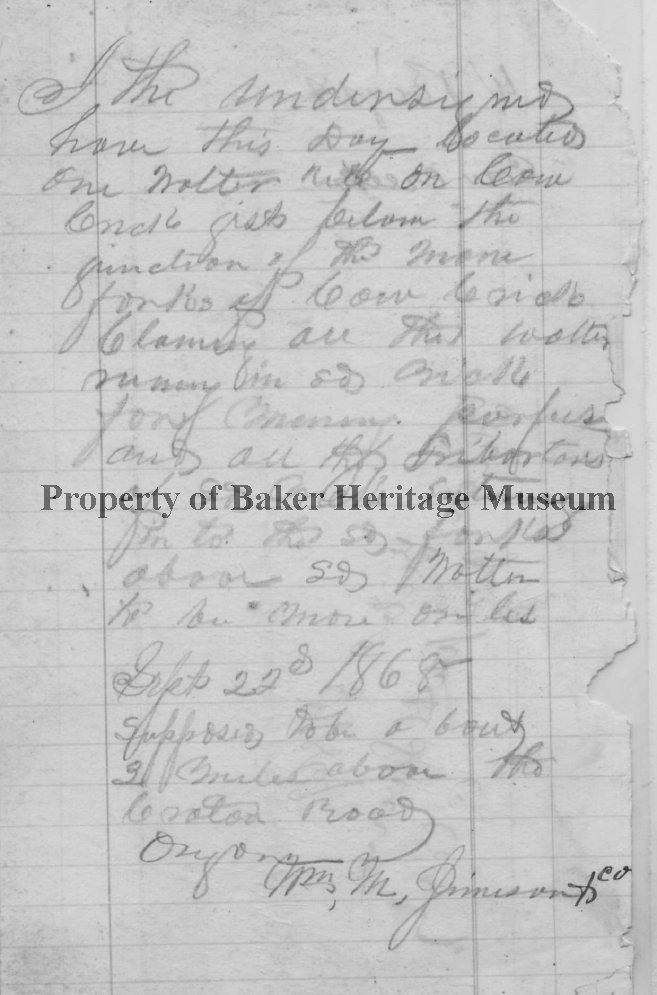 I the undersigned
have this Day Located
one Watter rite on Cow
Crick jist below the
junction of the more
forks of Cow Crick
Claming all the watter
runing in sd Crick
for Mining porpus
and all the tributars
Property of Baker Heritage Museum
in to the sd forks
above sd Watter
to be more or les
Sept 22d 1868
supposed to be a bout
3 Miles above the
Road
Orygon
Wm, M, Jimeson & co